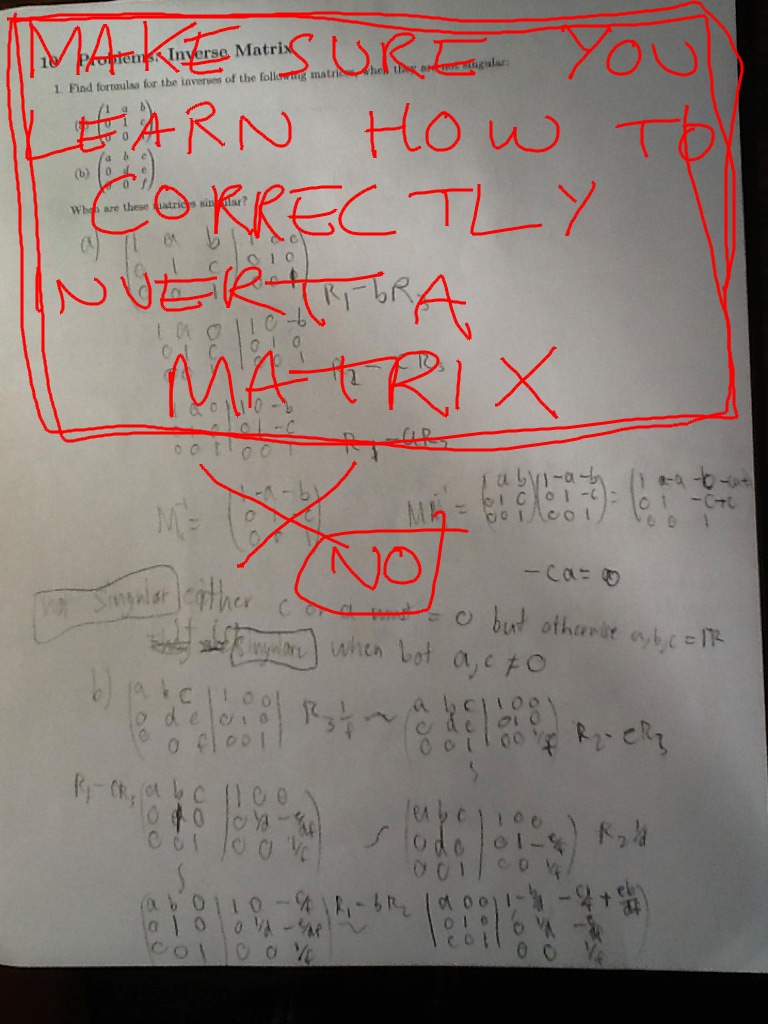 MAKE SURE YOU
LEARN HOW TO
CORRECTLY
INVERT A
MATRIX
NO
10 Problems: Inverse Matrix
1. Find formulas for the inverses of the following matrices, when they are not singular:
(a) 1 a b
0 1 c
0 0 1
(b) a b c
0 d e
0 0 f
When are these matrices singular?
a) 1 a b | 1 0 0
0 1 c | 0 1 0
0 0 1 | 0 0 1
R₁-bR₃
1 a 0 | 1 0 -b
0 1 c | 0 1 0
0 0 1
R₂-cR₃
1 a 0 | 1 0 -b
0 1 -c
0 0 1 | 0 0 1
R₁-aR₂
M⁻¹ = (1 -a -b
0 1 -c
0 0 1)
MM⁻¹ = (1 a b
0 1 c
0 0 1) (1 -a -b
0 1 -c
0 0 1) = (1 a-a -b
0 1 -c+c
0 0 1
-ca=0
not singular either c or a must = 0 but otherwise a,b,c = ℝ
singular when bot a,c ≠ 0
b) a b c | 1 0 0
0 d e | 0 1 0
0 0 f | 0 0 1
R₃ 1/f ~
a b c | 1 0 0
0 d e | 0 1 0
0 0 1 | 0 0 1/f
R₂-eR₃
a b c | 1 0 0
0 d 0 | 0 1 -e/f
0 0 1 | 0 0 1/f
R₂ 1/d
R₁-cR₃
a b c | 1 0 0
0 0 | 0 1/d -e/df
0 0 1 | 0 0
a b 0 | 1 0 -c/f
0 1 0 | 0 1/d -e/df
0 0 1 | 0 0 1/f
R₁-bR₂ ~
a 0 0 | 1 -b/d -c/f + eb/df
0 1 0 | 0 1/d
0 0 1 | 0 0 1/f